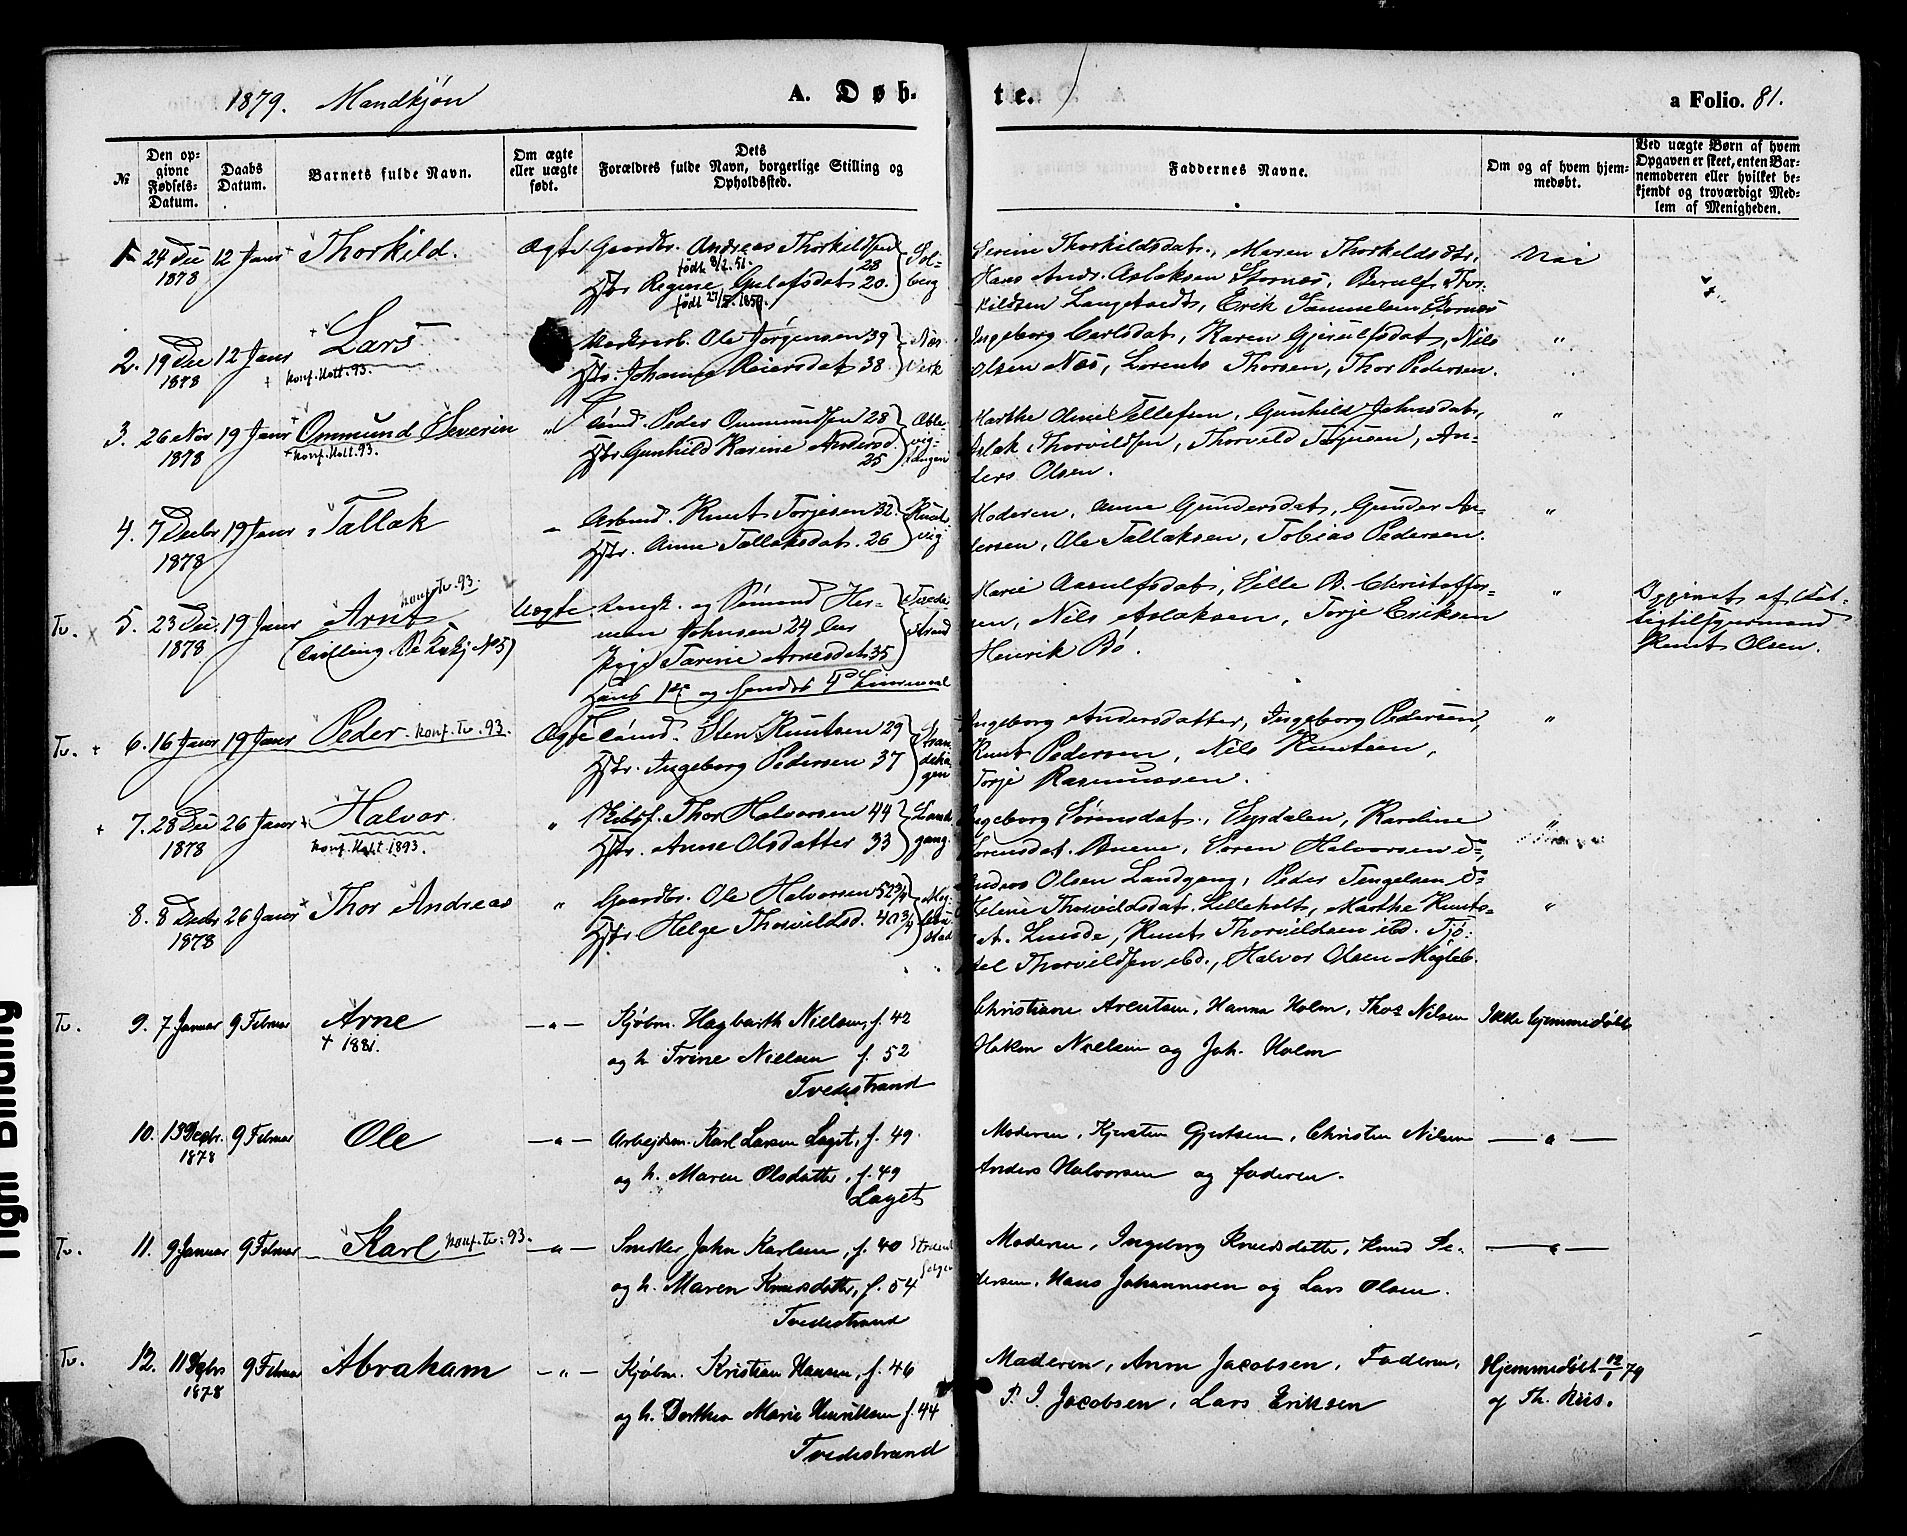 1879. Mandkjøn
A. Døb-
te.
a Folio. 81.
№
Den op-
givne
Fødsels-
Datum.
Daabs
Datum.
Barnets fulde Navn.
Om ægte
eller uægte
født.
Dets
Forældres fulde Navn, borgerlige Stilling og
Opholdssted.
Faddernes Navne.
Om og af hvem hjem-
medøbt.
Ved uægte Børn af hvem
Opgaven er skeet, enten Bar-
nemoderen eller hvilket be-
kjendt og troværdigt Med-
lem af Menigheden.
1. 24 Dec 1878 12 Janr Thorkild. Ægte Gaardbr. Andreas Thorkildsen 28
født 8/2. 51.
Hstr. Regine Gulofsdat 20. Solberg
født 27/5. 1859.
Serine Thorkildsdat., Maren Thorkeldsdtr.
Hans Andr. Aslaksen Stornes, Berulf Tor-
kildsen Langetvedt, Erik Samuelsen Stornes
Nei
2. 19 Dec 1878 12 Janr Lars
konf. Holt. 93.
Ole Jørgensen 39
Hstr. Johanne Reiersdat 38. Næs Verk
Ingeborg Carlsdat, Karen Gjeruldsdat, Nils
Olsen Næs, Lorents Thorsen, Thor Pedersen.
"
3. 26 Nov 1878 19 Janr Ommund Severin "
konf. Holt. 93.
Peder Ommundsen 28
Hstr. Gunhild Karine Andersd. 25
Marthe Oline Tellefsen, Gunhild Johnsdat,
Aslak Thorvildsen, Thorveld Terjusen, An-
ders Olsen.
"
4. 7 Decbr 1878 19 Janr Tallak "
Arbmd. Knut Torjesen 32.
Hstr. Anne Tallaksdat. 26
Moderen, Anne Gundersdat, Gunder An-
dersen, Ole Tallaksen, Tobias Pedersen.
"
Tv. 5. 23 Dec 1878 19 Janr Arnt konf. Tv. 93.
(Tvilling. Se Kvkj No 5)
Uægte Ungk. og Sømand Her-
man Johnsen 24 Aar
Pige Tarine Arnesdat 35
Hans 1ste og hendes 4de Leiermaal
Tvede-
strand
Marie Aasulfsdat, Sille B. Christoffer-
sen, Nils Aslaksen, Torje Eriksen
Henrik Bö.
"
Opgivet af Fat-
tigtilsynsmand
Knut Olsen.
Tv. 6. 16 Janr 19 Janr Peder konf. Tv. 93. Ægte
Sten Knutsen 29
Hstr. Ingeborg Pedersen 37
Ingeborg Andersdatter, Ingeborg Pedersen,
Knut Pedersen, Nils Knutsen,
Torje Rasmussen.
"
7. 28 Dec 1878 26 Janr Halvor "
konf. Holt 1893.
Thor Halvorsen 44
Hstr. Anne Olsdatter 33
Land-
gang
Ingeborg Sørensdat., Karoline
Sørensdat. Buene, Søren Halvorsen
Anders Olsen Landgang, Peder Tengelsen
8. 8 Decbr 1878 26 Janr Thor Andreas "
Gaardbr. Ole Halvorsen 52 3/4
Hstr. Helge Thorvildsd. 40 3/4
Helene Thorvildsdat. Lilleholt, Marthe Knuts-
dat. Lunde, Knut Thorvildsen ibd.
Thorvildsen ibd., Halvor Olsen Mögleb.
"
Tv. 9. 7 Januar 9 Februar Arne
+ 1881.
— " — Kjøbm. Hagbarth Nielsen, f. 42
og h. Trine Nielsen f. 52
Tvedestrand
Christiane Arentsen, Hanna Holm, Thor Nilsen
Haken Nielsen og Joh. Holm
Ikke hjemmedøbt
10. 13 Decbr. 1878 9 Februar Ole
— " — Arbejdsm. Karl Larsen Laget, f. 49.
og h. Maren Olsdatter, f. 49
Laget
Moderen, Kjersten Gjertsen, Christen Nilsen
Anders Halvorsen og faderen.
— " —
Tv. 11. 9 Januar 9 Februar Karl konf. Tv. 93.
— " — Smeker John Karlsen, f. 40
og h. Maren Knudsdatter, f. 54
Tvedestrand
Moderen, Ingeborg Knudsdatter, Knud Pe-
dersen, Hans Johannesen og Lars Olsen.
— " —
Tv. 12. 11 Decbr 1878 9 Februar Abraham
— " — Kjøbm. Kristian Hansen, f. 46
og h. Dorthea Marie Henriksen f. 44
Tvedestrand
Moderen, Anne Jacobsen, Faderen,
P. J. Jacobsen, Lars Eriksen
Hjemmedøbt 12/1 79
af Th. Riis.
Tight Binding